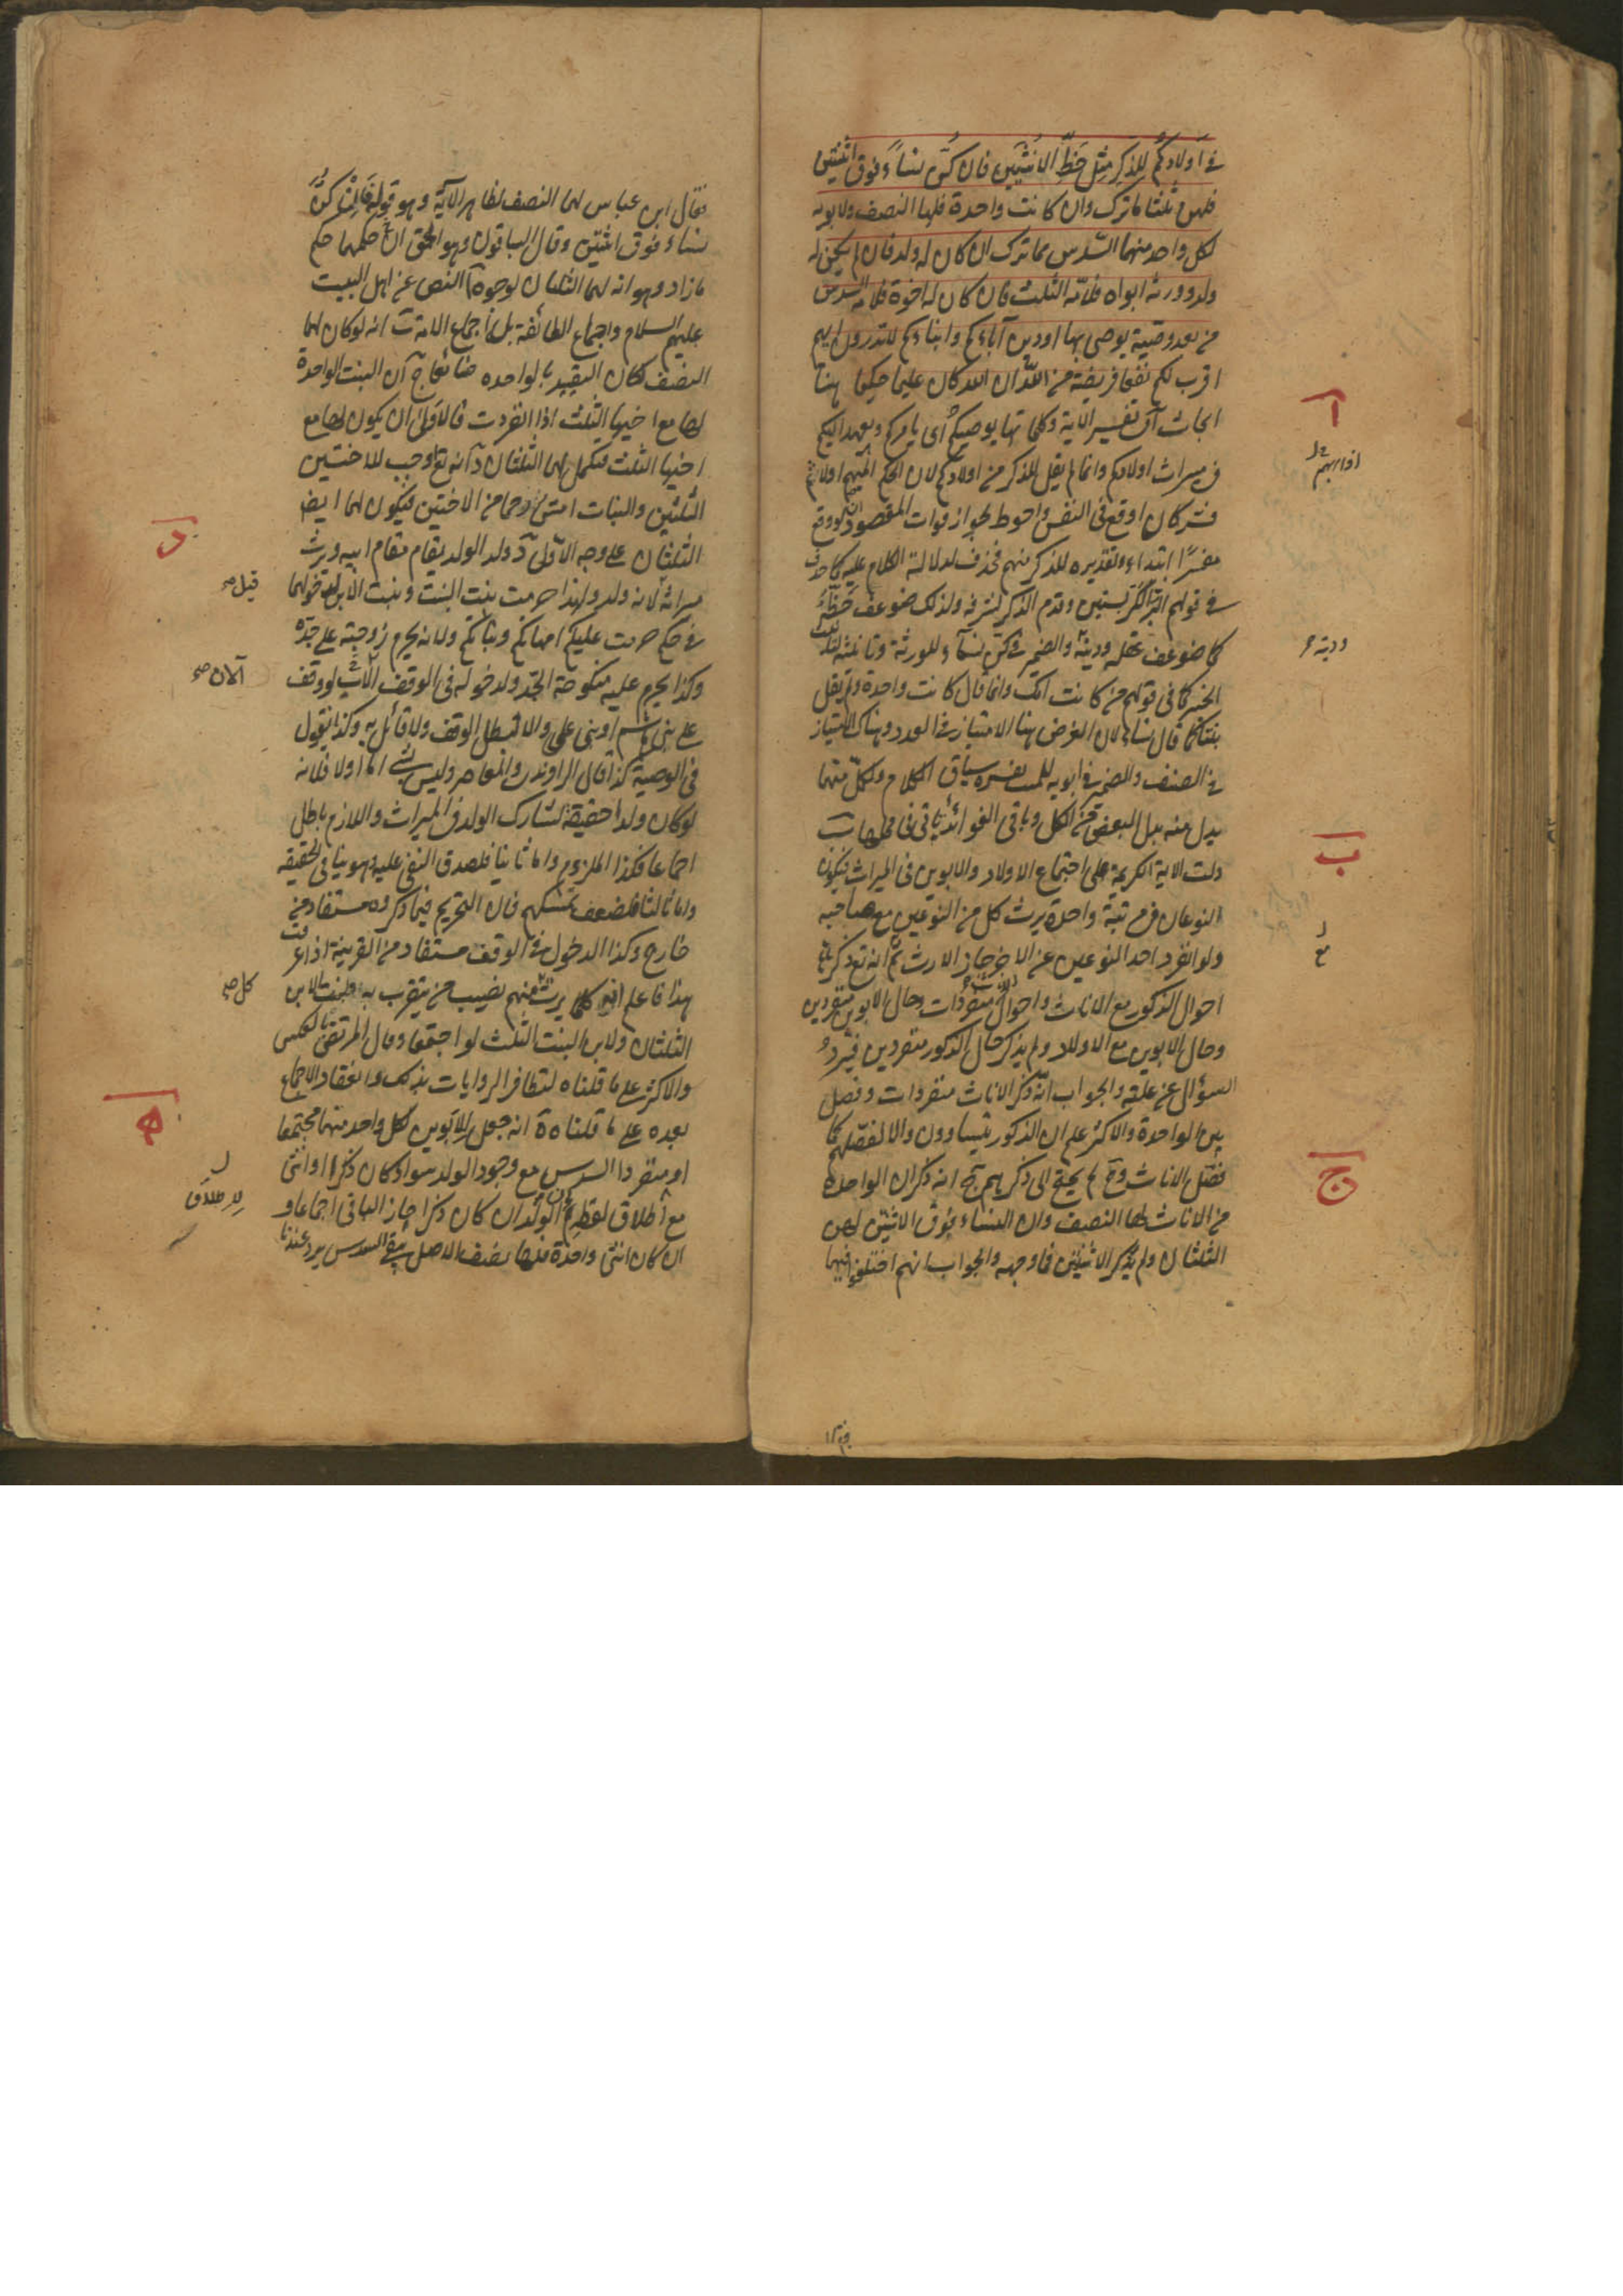 في أولادكم للذكر مثل حظ الأنثيين فان كن نساء فوق اثنتين
فلهن ثلثا ما ترك وان كانت واحدة فلها النصف ولابويه
لكل واحد منهما السدس مما ترك ان كان له ولد فان لم يكن له
ولد وورثه ابواه فلامه الثلث فان كان له اخوة فلامه السدس
من بعد وصية يوصى بها او دين آباءكم وابناءكم لا تدرون ايهم
اقرب لكم نفعا فريضة من الله ان الله كان عليما حكيما هنا
ابحاث آ في تفسير الاية وكلماتها يوصيكم أي يامركم ويعهد اليكم
في ميراث اولادكم وانما لم يقل للذكر من اولادكم لان الحكم المبهم اولا ثم
فسر كان اوقع في النفس واحوط لجواز فوات المقصود لو وقع
مفسرًا ابتداء وتقديره للذكر منهم فحذف لدلالة الكلام عليه كما حذف
في قولهم البر الكر بستين وقدم الذكر لشرفه ولذلك ضوعف حظه
كما ضوعف عقله ودينه والضمير في كن نساء للورثة وتانيثه
الخبر كما في قولهم من كانت امك وانما قال كانت واحدة ولم يقل
بنتا كما قال نساء لان الغرض هنا الامتياز في العدد وهناك الامتياز
في الصنف والضمير في ابويه للميت يفسره سياق الكلام ولكل منهما
بدل منه بدل البعض من الكل وباقي الفوائد ياتي في محلها ب
دلت الاية الكريمة على اجتماع الاولاد والابوين في الميراث فيكون
النوعان في مرتبة واحدة يرث كل من النوعين مع صاحبه
ولو انفرد احد النوعين عن الاخر حاز الارث ثم انه تع ذكر
احوال الذكور مع الاناث واحوال الاناث منفردات وحال الابوين منفردين
وحال الابوين مع الاولاد ولم يذكر حال الذكور منفردين فيرد
السؤال عن علته والجواب انه ذكر الاناث منفردات وفصل
بين الواحدة والاكثر علم ان الذكور يتساوون والا لفصلهم كما
فصل الاناث وح لم يحتج الى ذكرهم ج انه ذكر ان الواحدة
من الاناث لها النصف وان النساء فوق الاثنتين لهن
الثلثان ولم يذكر الاثنتين فما وجهه والجواب انهم اختلفوا فيهما
فقال ابن عباس لهما النصف لظاهر الآية وهو قوله فان كن
نساء فوق اثنتين وقال الباقون وهو الحق ان حكمهما حكم
ما زاد وهو انه لهما الثلثان لوجوه آ النص عن اهل البيت
عليهم السلام واجماع الطائفة بل اجماع الامة ب انه لو كان لهما
النصف لكان التقييد بالواحدة ضائعا ج ان البنت الواحدة
لها مع اخيها الثلث اذا انفردت فالاولى ان يكون لها مع
اختها الثلث فيكمل لهما الثلثان د انه تع اوجب للاختين
الثلثين والبنات امس رحما من الاختين فيكون لهما ايضا
الثلثان على وجه الاولى د ولد الولد يقام مقام ابيه ويرث
ميراثه لانه ولد ولهذا حرمت بنت البنت وبنت الابن لدخولهما
في حكم حرمت عليكم امهاتكم وبناتكم ولانه يحرم زوجته على جده
وكذا يحرم عليه منكوحة الجد ولدخوله في الوقف الآن لو وقف
على بني هاشم او بني علي والا لبطل الوقف ولا قائل به وكذا نقول
في الوصية كذا قال الراوندي والمعاصر وليس بشيء اما اولا فلانه
لو كان ولدا حقيقة لشارك الولد في الميراث واللازم باطل
اجماعا فكذا الملزوم واما ثانيا فلصدق النفي عليه وهو ينافي الحقيقة
واما ثالثا فلضعف تمسكهم فان التحريم فيما ذكروه مستفاد من
خارج وكذا الدخول في الوقف مستفاد من القرينة اذا عرفت
هذا فاعلم انه كل يرث منهم نصيب من يتقرب به فلبنت الابن
الثلثان ولابن البنت الثلث لو اجتمعا وقال المرتضى بالعكس
والاكثر على ما قلناه لتظافر الروايات بذلك وانعقاد الاجماع
بعده على ما قلناه ه انه جعل للابوين لكل واحد منهما مجتمعا
او منفردا السدس مع وجود الولد سواء كان ذكرا او انثى
مع اطلاق لفظ الولد ان كان ذكرا حاز الباقي اجماعا و
ان كان انثى واحدة فلها نصف الاصل يبقى السدس يرد عندنا
آ
ودينه
ب
ج
د
قيل صح
الآن صح
كل صح
ه